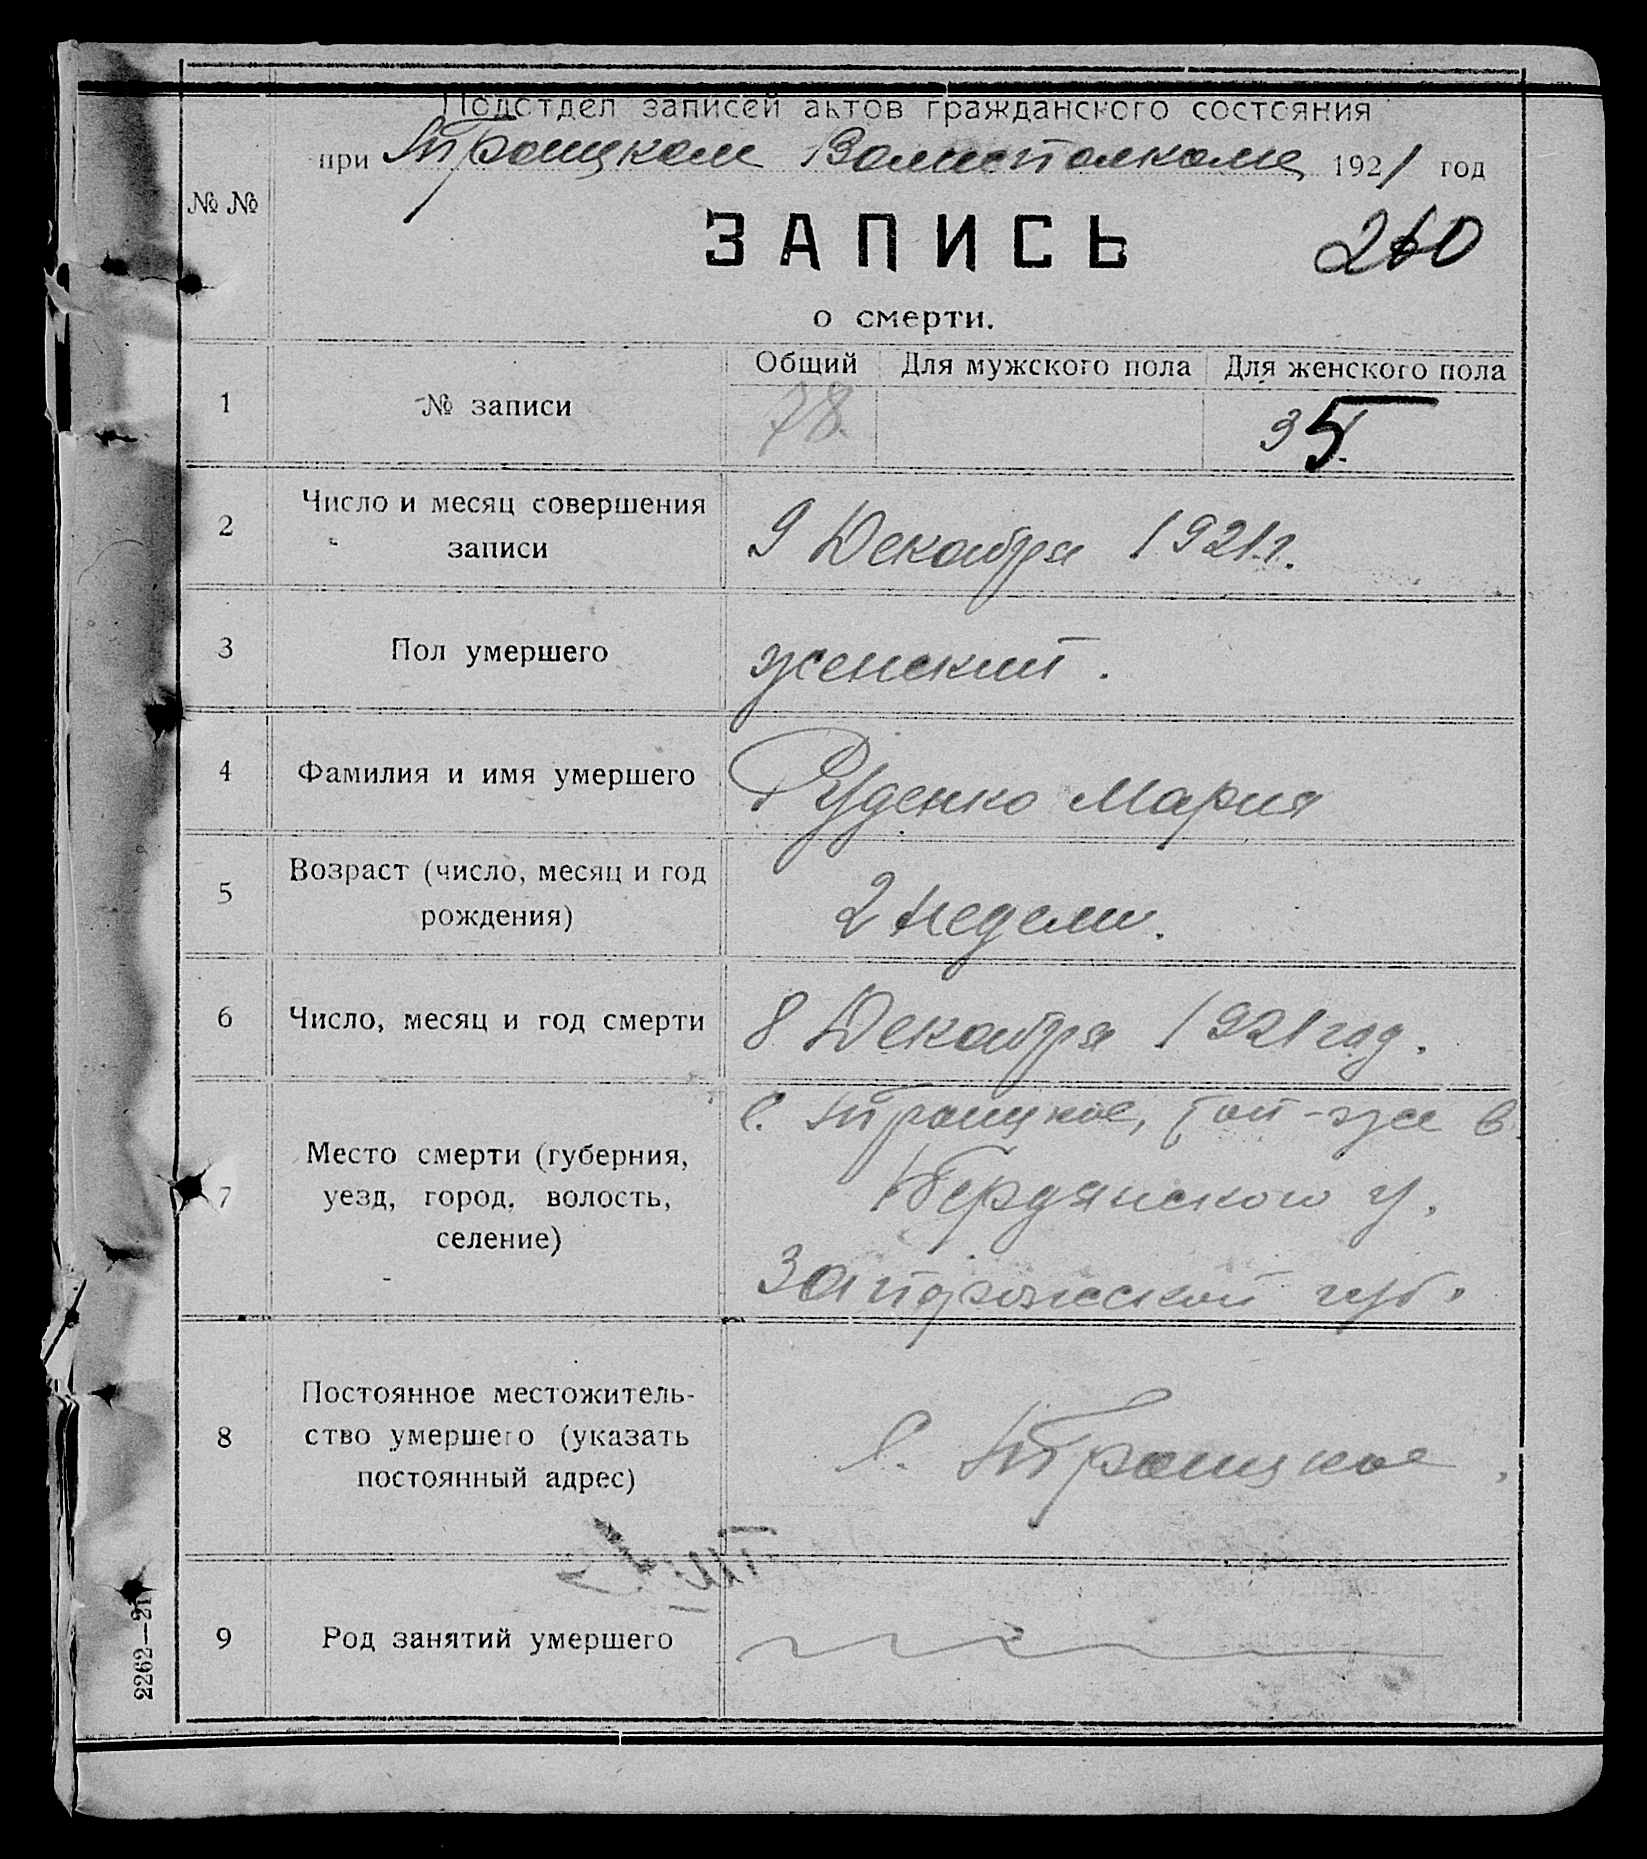 Подотдел записей актов гражданского состояния
при Троицком Волисполкоме 1921 год
№ №
ЗАПИСЬ
260
о смерти.
Общий Для мужского пола Для женского пола
1 № записи 78. 35.
2 Число и месяц совершения
записи
9 Декабря 1921 г.
3 Пол умершего женский.
4 Фамилия и имя умершего Руденко Мария
5 Возраст (число, месяц и год
рождения)
2 недели.
6 Число, месяц и год смерти 8 Декабря 1921 год.
7 Место смерти (губерния,
уезд, город, волость,
селение)
с. Троицкое, той-же в.
Бердянского у.
Запорожской губ.
8 Постоянное местожитель-
ство умершего (указать
постоянный адрес)
С. Троицкое.
9 Род занятий умершего
2262—21